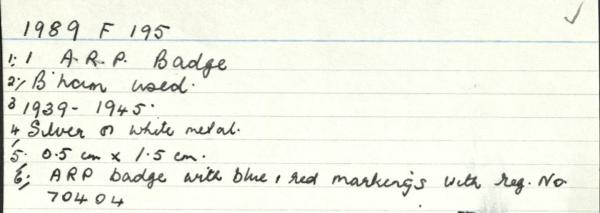 1989 F 195
1; 1 A.R.P. Badge
2; B'ham used.
3 1939 - 1945.
4 Silver or white metal.
5; 0.5 cm x 1.5 cm.
6; ARP badge with blue, red markings with reg. No.
70404